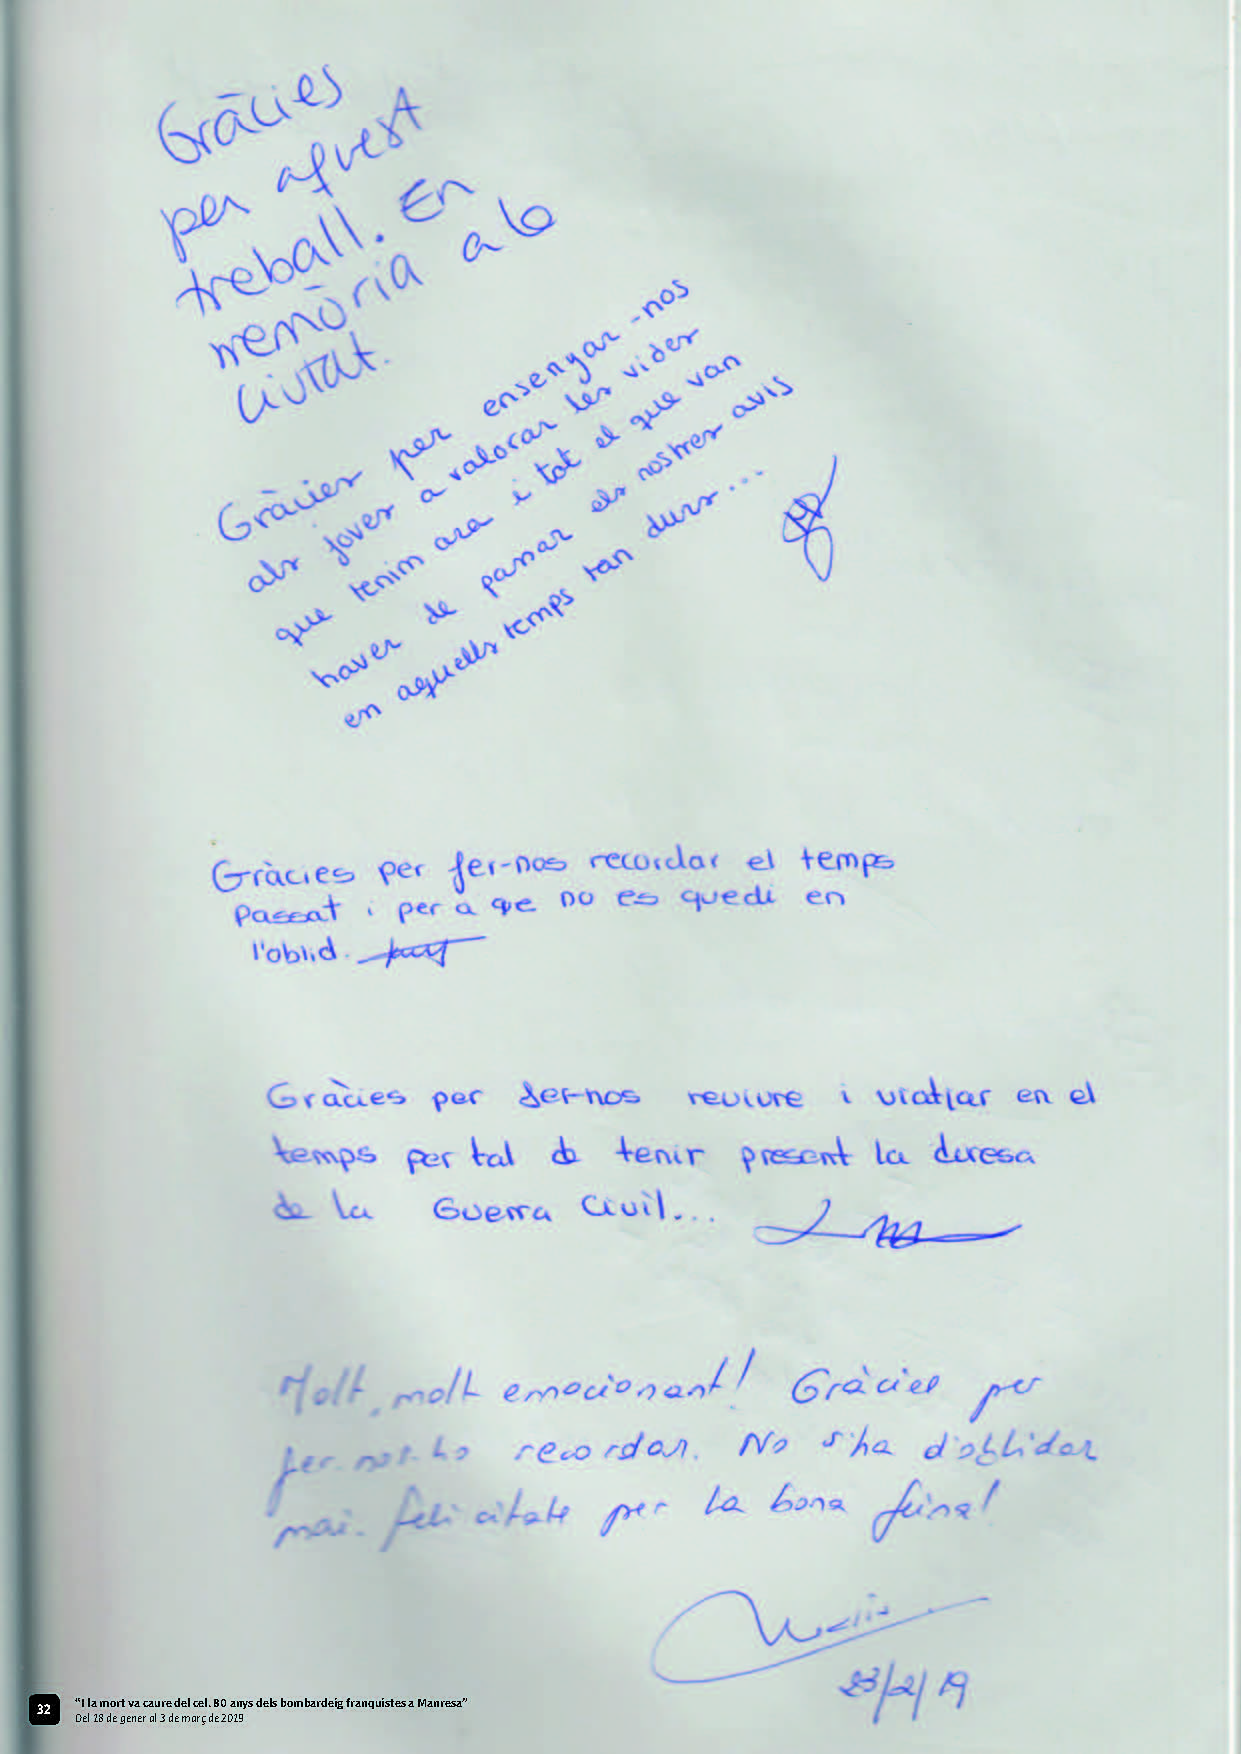 Gràcies
per aquest
treball. En
memòria a la
ciutat.
Gràcies per ensenyar-nos
als joves a valorar les vides
que tenim ara i tot el que van
haver de passar els nostres avis
en aquells temps tan durs...
Gràcies per fer-nos recordar el temps
passat i per a que no es quedi en
l'oblid.
Gràcies per fer-nos reviure i viatjar en el
temps per tal de tenir present la duresa
de la Guerra Civil...
Molt, molt emocionant! Gràcies per
fer-nos-ho recordar. No s'ha d'oblidar
mai. Felicitats per la bona feina!
23/2/19
32
"I la mort va caure del cel. 80 anys dels bombardeig franquistes a Manresa"
Del 18 de gener al 3 de març de 2019